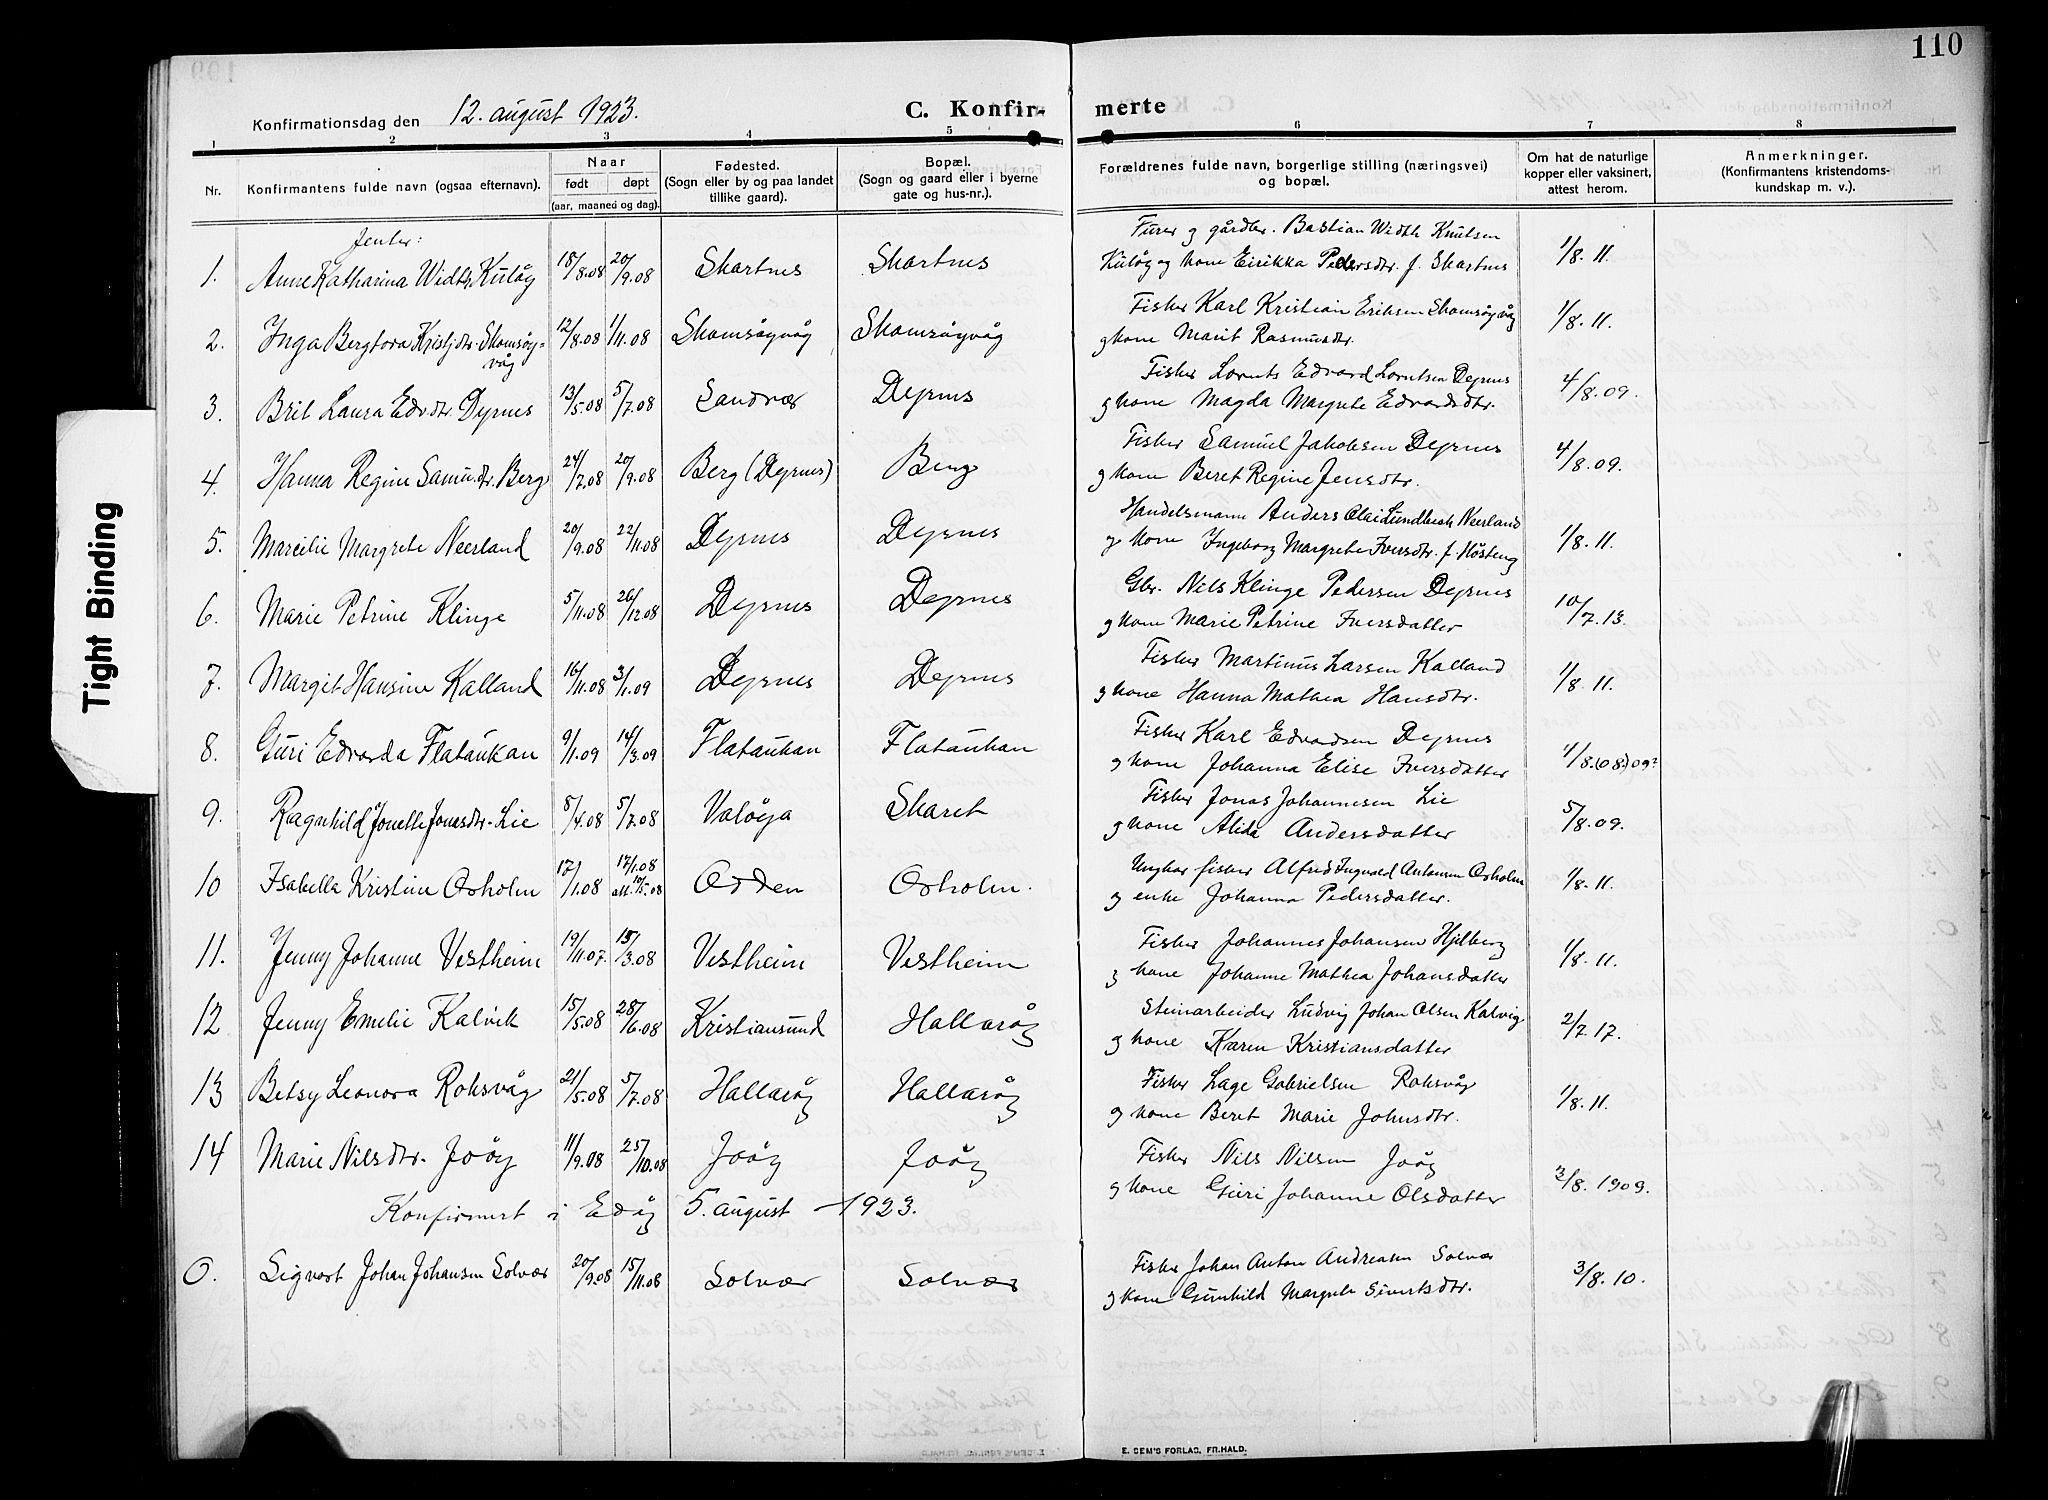 110
Konfirmationsdag den 12. august 1923. C. Konfir- merte
1 2 3 4 5 6 7 8
Nr. Konfirmantens fulde navn (ogsaa efternavn). Naar født døpt (aar, maaned og dag). Fødested. (Sogn eller by og paa landet tillike gaard). Bopæl. (Sogn og gaard eller i byerne gate og hus-nr.). Forældrenes fulde navn, borgerlige stilling (næringsvei) og bopæl. Om hat de naturlige kopper eller vaksinert, attest herom. Anmerkninger. (Konfirmantens kristendoms- kundskap m. v.).
Jenter:
1. Anne Katharina Width Kuløy 18/8.08 20/9.08 Skartnes Skartnes Furer og gårdbr. Bastian Width Knutsen
Kuløy og kone Eirikka Pedersdtr. f. Skartnes 1/8. 11.
2. Inga Bergtora Kristjdtr. Skomsøy=
våg 12/8.08 1/11.08 Skomsøyvåg Skomsøyvåg Fisker Karl Kristian Eriksen Skomsøyvåg
og kone Marit Rasmusdtr. 1/8. 11.
3. Brit Laura Edv.dtr. Dyrnes 13/5.08 5/7.08 Sandvær Dyrnes Fisker Lornts Edvard Lorntsen Dyrnes
og kone Magda Margrete Edvardsdtr. 4/8. 09.
4. Hanna Regine Samu.dtr. Berg 24/7.08 20/9.08 Berg (Dyrnes) Berg Fisker Samuel Jakobsen Dyrnes
og kone Beret Regine Jensdtr. 4/8. 09.
5. Marcilie Margrete Neerland 20/9.08 22/11.08 Dyrnes Dyrnes Handelsmann Anders Olai Lundbech Neerland
og kone Ingeborg Margrete Iversdtr. f. Høsteng 1/8. 11.
6. Marie Petrine Klinge 5/11.08 26/12.08 Dyrnes Dyrnes Gbr. Nils Klinge Pedersen Dyrnes
og kone Marie Petrine Iversdatter 10/7. 13.
7. Margit Hansine Kalland 16/11.08 3/1.09 Dyrnes Dyrnes Fisker Martinus Larsen Kalland
og kone Hanna Mathea Hansdtr. 1/8. 11.
8. Guri Edvarda Flataukan 9/1.09 14/3.09 Flataukan Flataukan Fisker Karl Edvardsen Dyrnes
og kone Johanna Elise Iversdatter 4/8. (08.) 09?
9. Ragnhild Jonette Jonasdtr. Lie 8/4.08 5/7.08 Valøya Skaret Fisker Jonas Johannesen Lie
og kone Alida Andersdatter 5/8. 09.
10 Isabella Kristine Orholm 17/1.08 17/1.08
st. 10/5.08 Odden Orholm. Ungkar fisker Alfred Ingvald Antonsen Orholm
og enke Johanna Pedersdatter. 1/8. 11.
11. Jenny Johanne Vestheim 19/11.07. 15/3.08 Vestheim Vestheim Fisker Johannes Johansen Hjelberg
og kone Johanne Mathea Johansdatter 1/8. 11.
12 Jenny Emelie Kalvik 15/5.08 28/6.08 Kristiansund Hallarøy Steinarbeider Ludvig Johan Olsen Kalvig
og kone Karen Kristiansdatter 2/7. 17.
13 Betsy Leonora Roksvåg 21/5.08 5/7.08 Hallarøy Hallarøy Fisker Lage Gabrielsen Roksvåg
og kone Beret Marie Johnsdtr. 1/8. 11.
14 Marie Nilsdtr. Joøy 11/9.08 25/10.08 Joøy Joøy Fisker Nils Nilsen Joøy
og kone Guri Johanne Olsdatter 3/8. 1909.
Konfirmert i Edøy 5. august - 1923.
0. Sigvart Johan Johansen Solvær 20/9.08 15/11.08 Solvær Solvær Fisker Johan Anton Andreasen Solvær
og kone Gunhild Margrete Sivertsdtr. 3/8. 10.
E. SEM'S FORLAG, FR.HALD.
Tight Binding